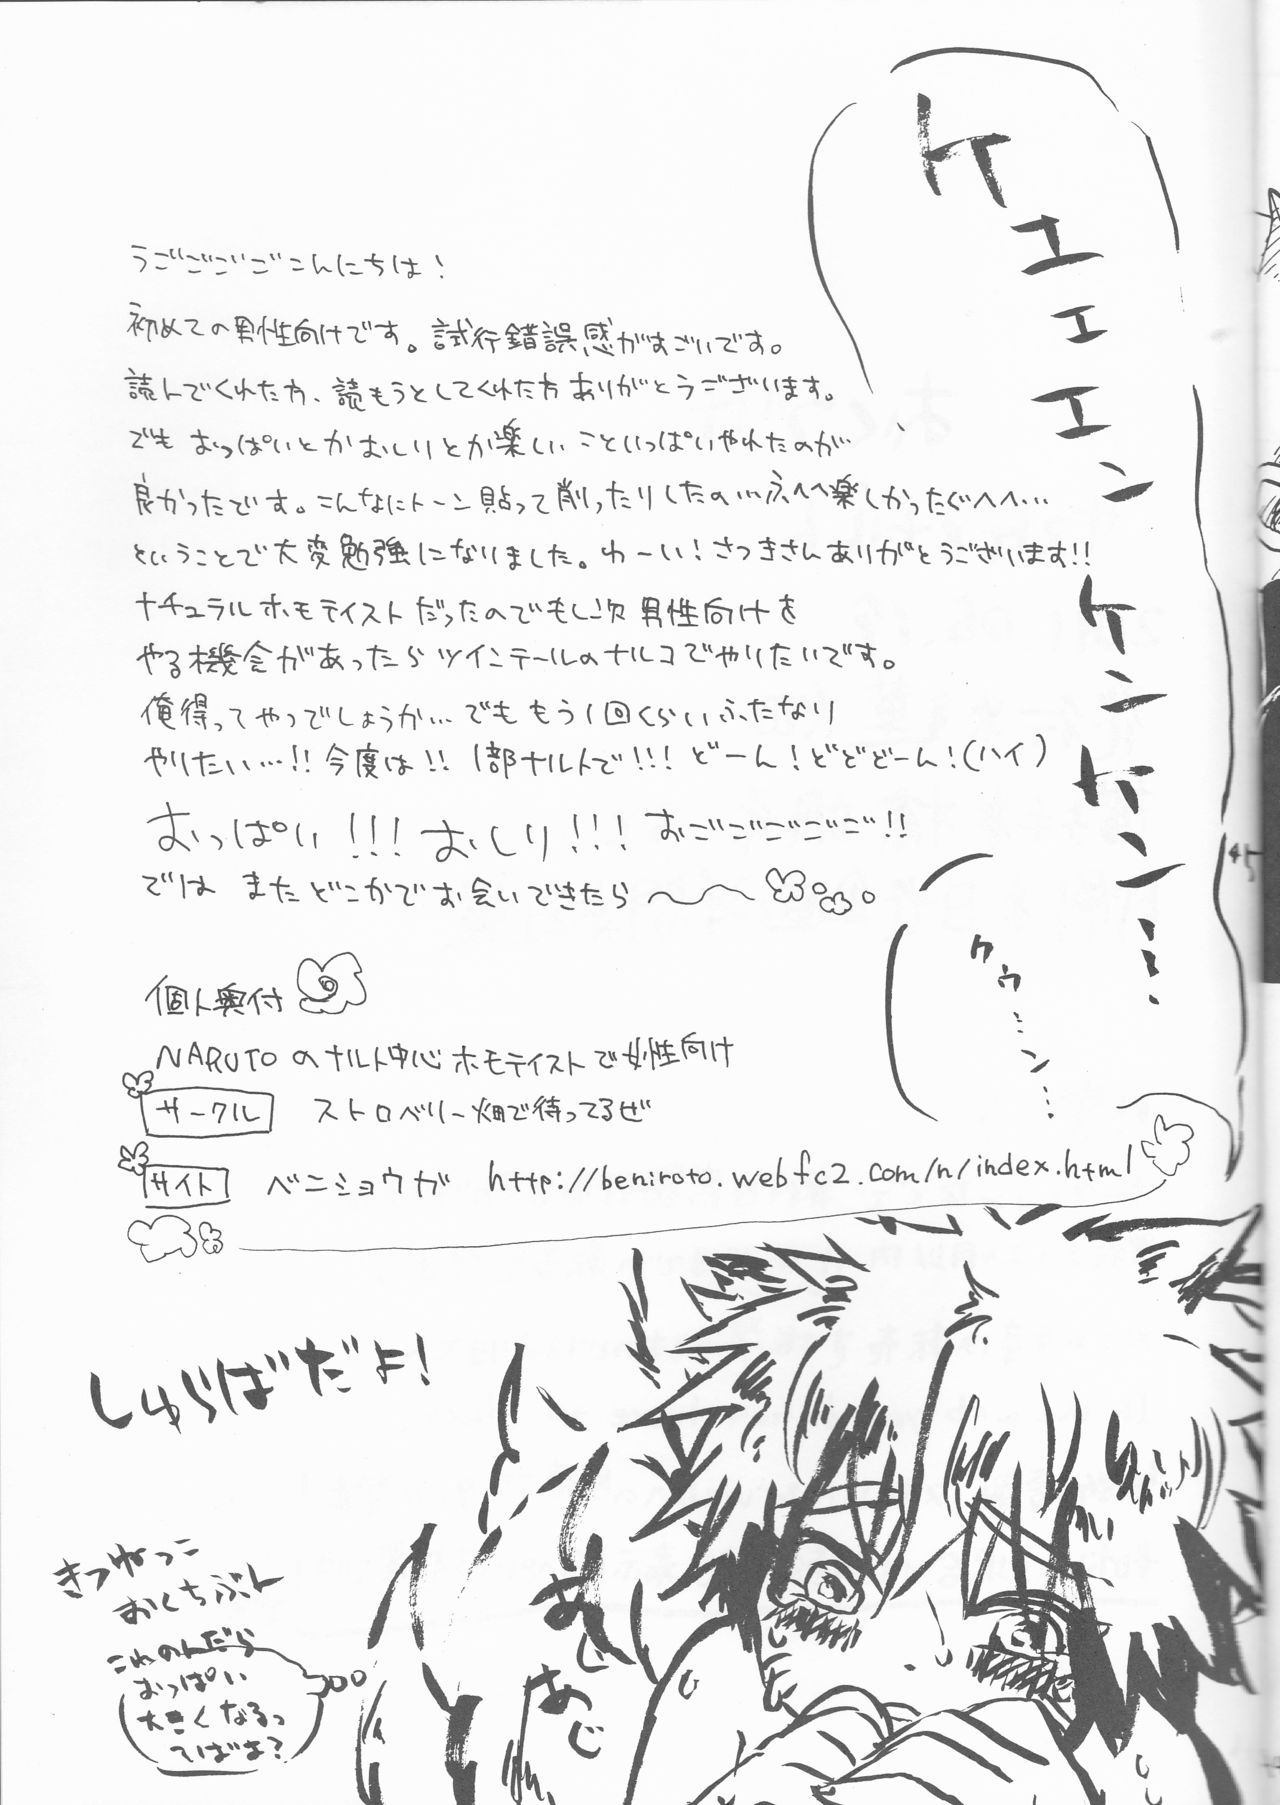 ケエエエンケンケン…
クゥ…ン…
うごごごごこんにちは!
初めての男性向けです。試行錯誤感がすごいです。
読んでくれた方、読もうとしてくれた方ありがとうございます。
でもおっぱいとかおしりとか楽しいこといっぱいやれたのが
良かったです。こんなにトーン貼って削ったりしたの…ふへへ楽しかったぐへへ…
ということで大変勉強になりました。わーい!さつきさんありがとうございます!!
ナチュラルホモテイストだったのでもし次男性向けを
やる機会があったらツインテールのナルコでやりたいです。
俺得ってやつでしょうか…でももう1回くらいふたなり
やりたい…!!今度は!!1部ナルトで!!!どーん!どどどーん!(ハイ)
おっぱい!!!おしり!!!おごごごごご!!
ではまたどこかでお会いできたら〜
個人奥付
NARUTOのナルト中心ホモテイストで女性向け
サークル ストロベリー畑で待ってるぜ
サイト ベニショウガ http://beniroto.web.fc2.com/n/index.html
しゅらばだよ!
きつねっこ
おくちぷん
これのんだら
おっぱい
大きくなるっ
てばよ?
あじ
あじ
45